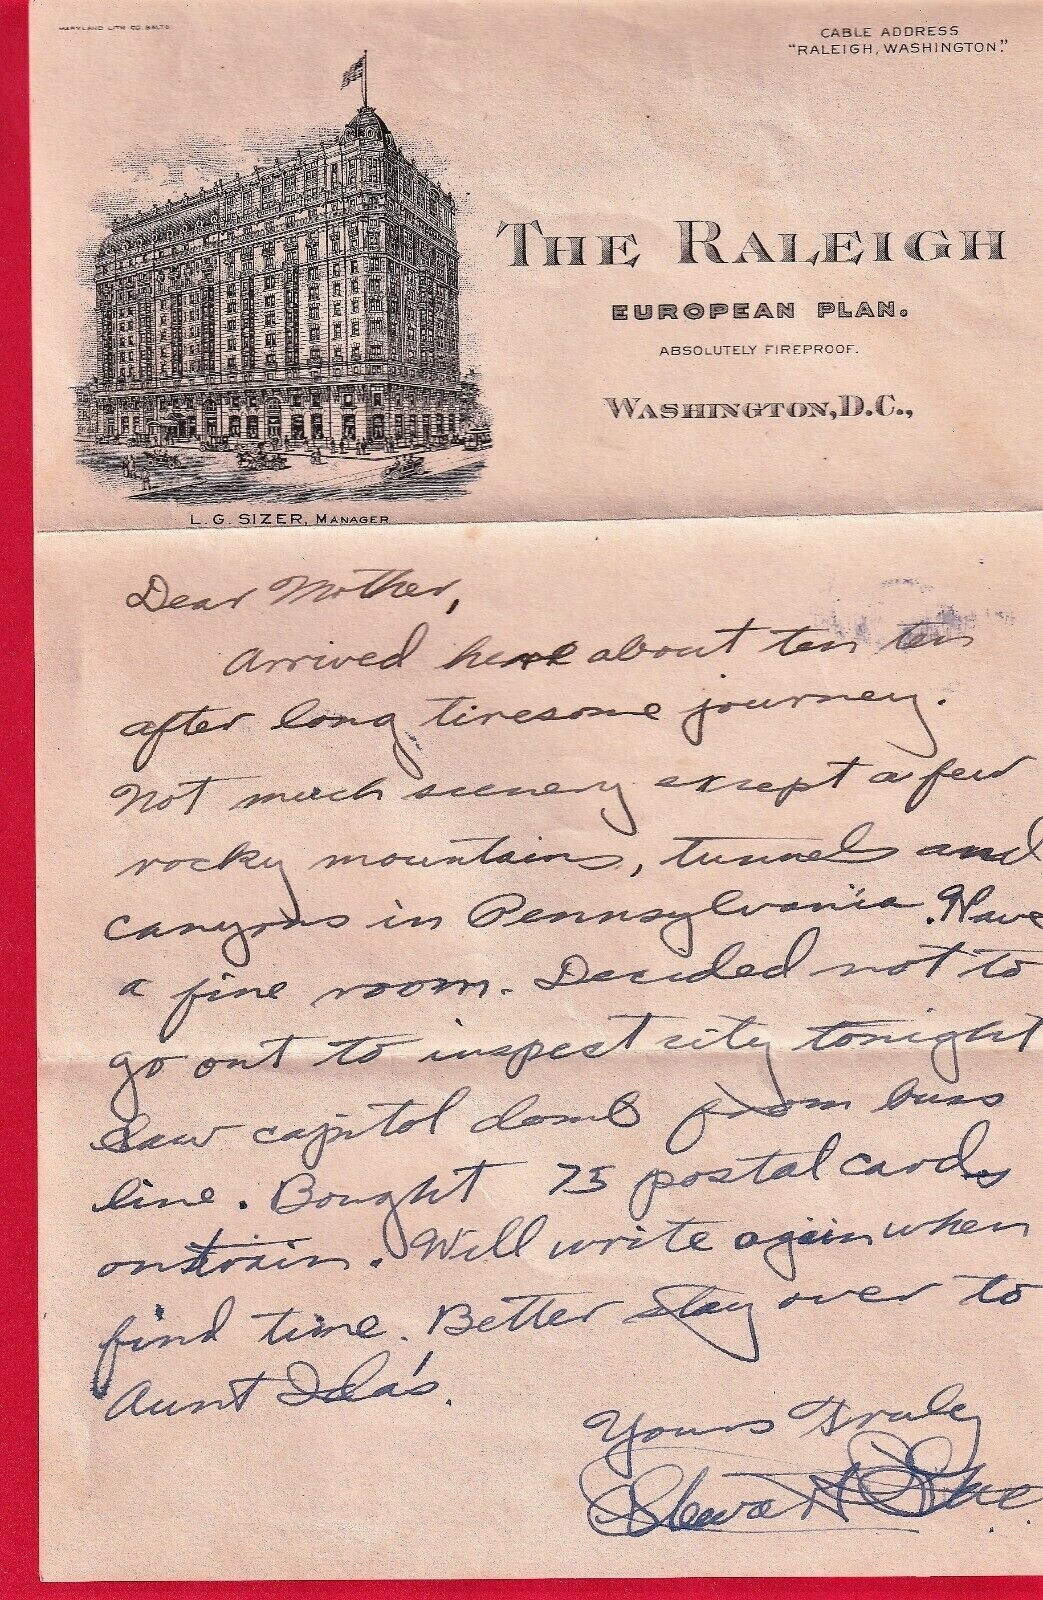 MARYLAND LITH CO. BALTO.
CABLE ADDRESS
"RALEIGH, WASHINGTON."
THE RALEIGH
EUROPEAN PLAN.
ABSOLUTELY FIREPROOF.
WASHINGTON, D.C.,
L. G. SIZER, MANAGER
Dear Mother,
Arrived here about ten ten
after long tiresome journey.
Not much scenery except a few
rocky mountains, tunnels and
canyons in Pennsylvania. Have
a fine room. Decided not to
go out to inspect city tonight
Saw capitol domb from buss
line. Bought 75 postal cards
on train. Will write again when
find time. Better stay over to
Aunt Ida's.
Yours Truley